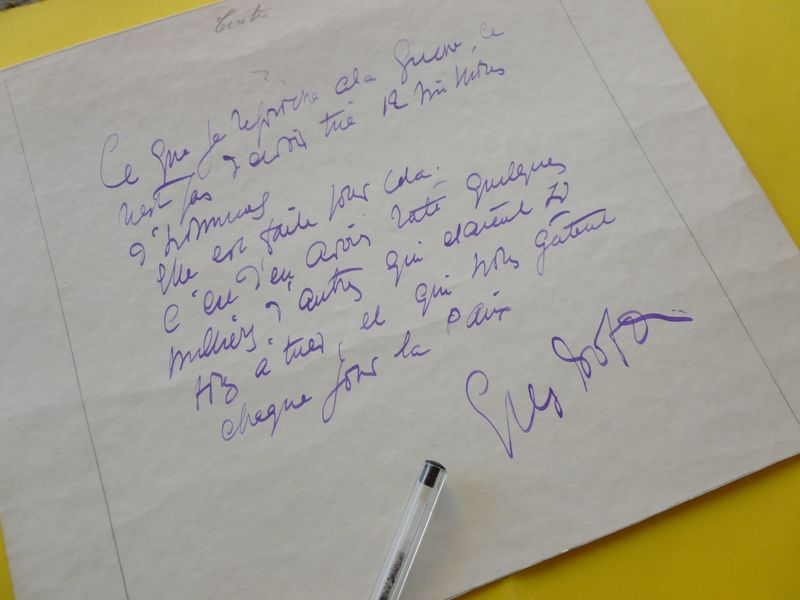 Texte
Ce que je reproche à la guerre, ce
n'est pas d'avoir tué 12 millions
d'hommes
Elle est faite pour cela.
C'est d'en avoir raté quelques
milliers d'autres qui étaient
à tuer, et qui nous gâtent
chaque jour la Paix